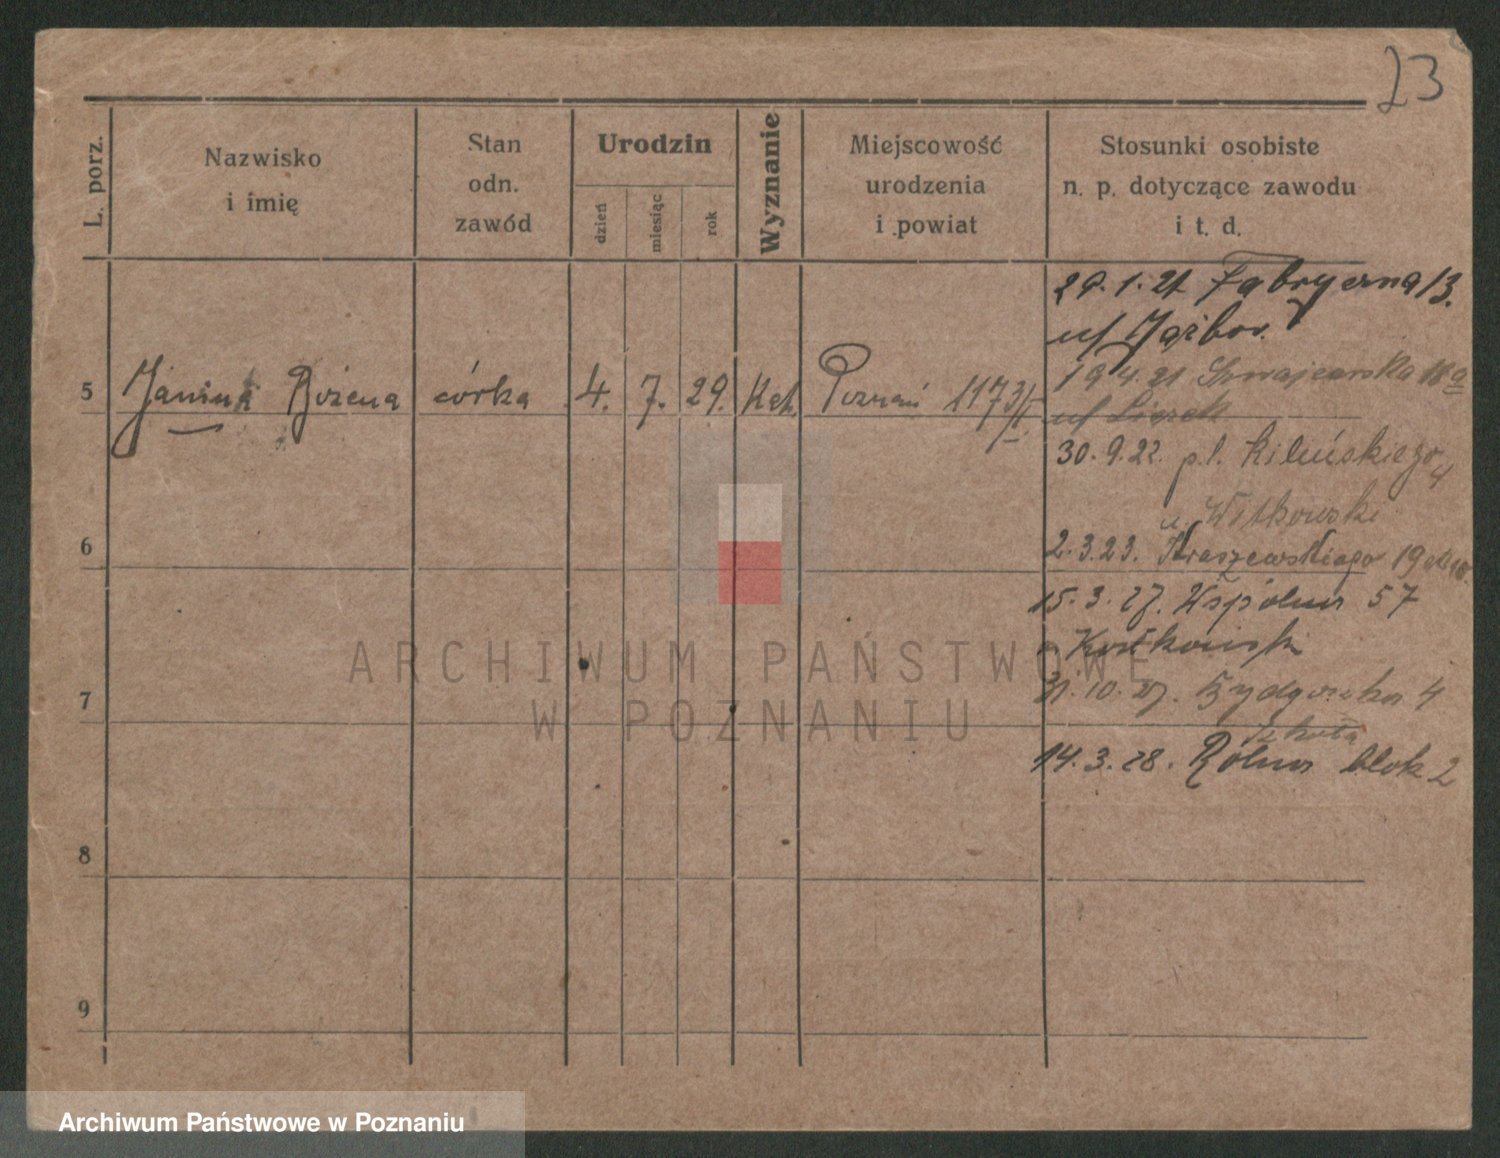 23
L. porz.
Nazwisko
i imię
Stan
odn.
zawód
Urodzin
dzień
miesiąc
rok
Wyznanie
Miejscowość
urodzenia
i powiat
Stosunki osobiste
n. p. dotyczące zawodu
i t. d.
29.1.21 Fabryczna 13.
5 Janina Bożena córka 4. 7. 29. Kat. Poznań 1173/
19.4.21 18a
30.9.22. pl. Kilińskiego 4
u. Witkowski
6
2.3.23. Kraszewskiego 19
15.3.27. Wspólna 57
31.10.27. Bydgoska 4
szkoła
7
14.3.28. Rolna blok 2
8
9
ARCHIWUM PAŃSTWOWE
W POZNANIU
Archiwum Państwowe w Poznaniu